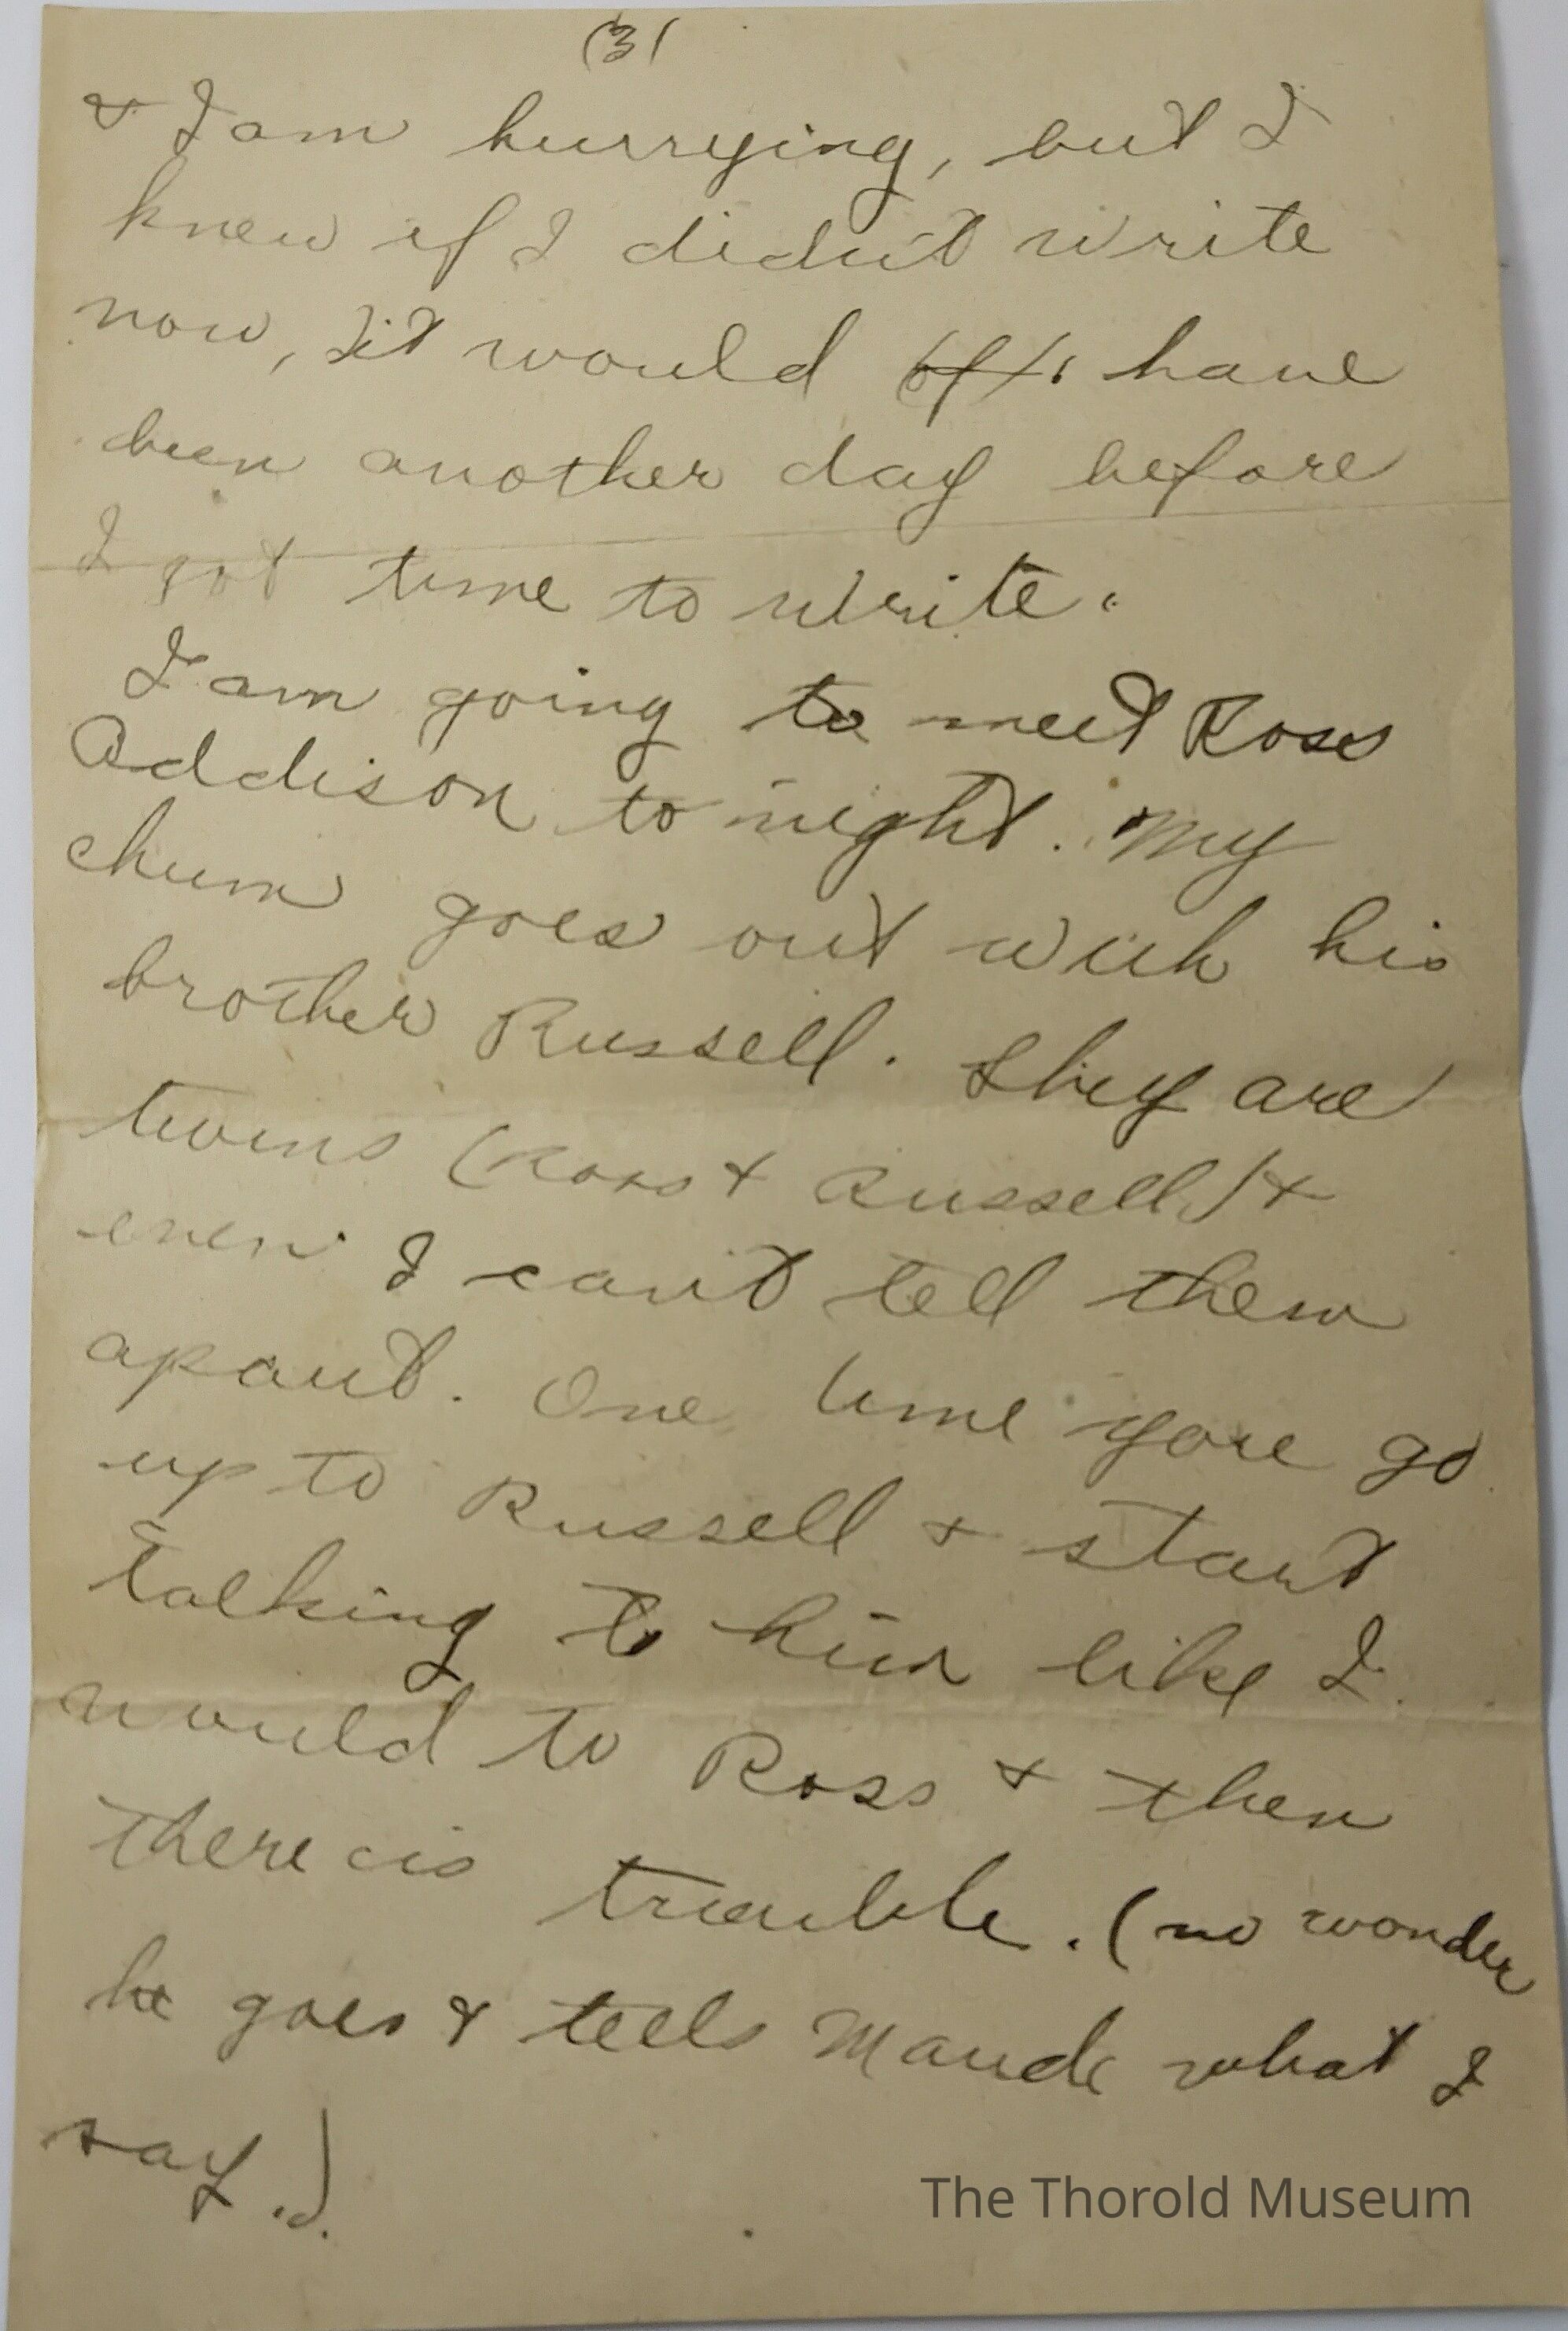 (3)
& I am hurrying, but I
knew if I didn't write
now, it would have
been another day before
I got time to write.
I am going to meet Ross
Addison to night. My
chum goes out with his
brother Russell. They are
twins (Ross & Russell) &
even I can't tell them
apart. One time go
up to Russell & start
talking to him like I
would to Ross & then
there is trouble. (no wonder
he goes & tells Maude what I
say.)
The Thorold Museum